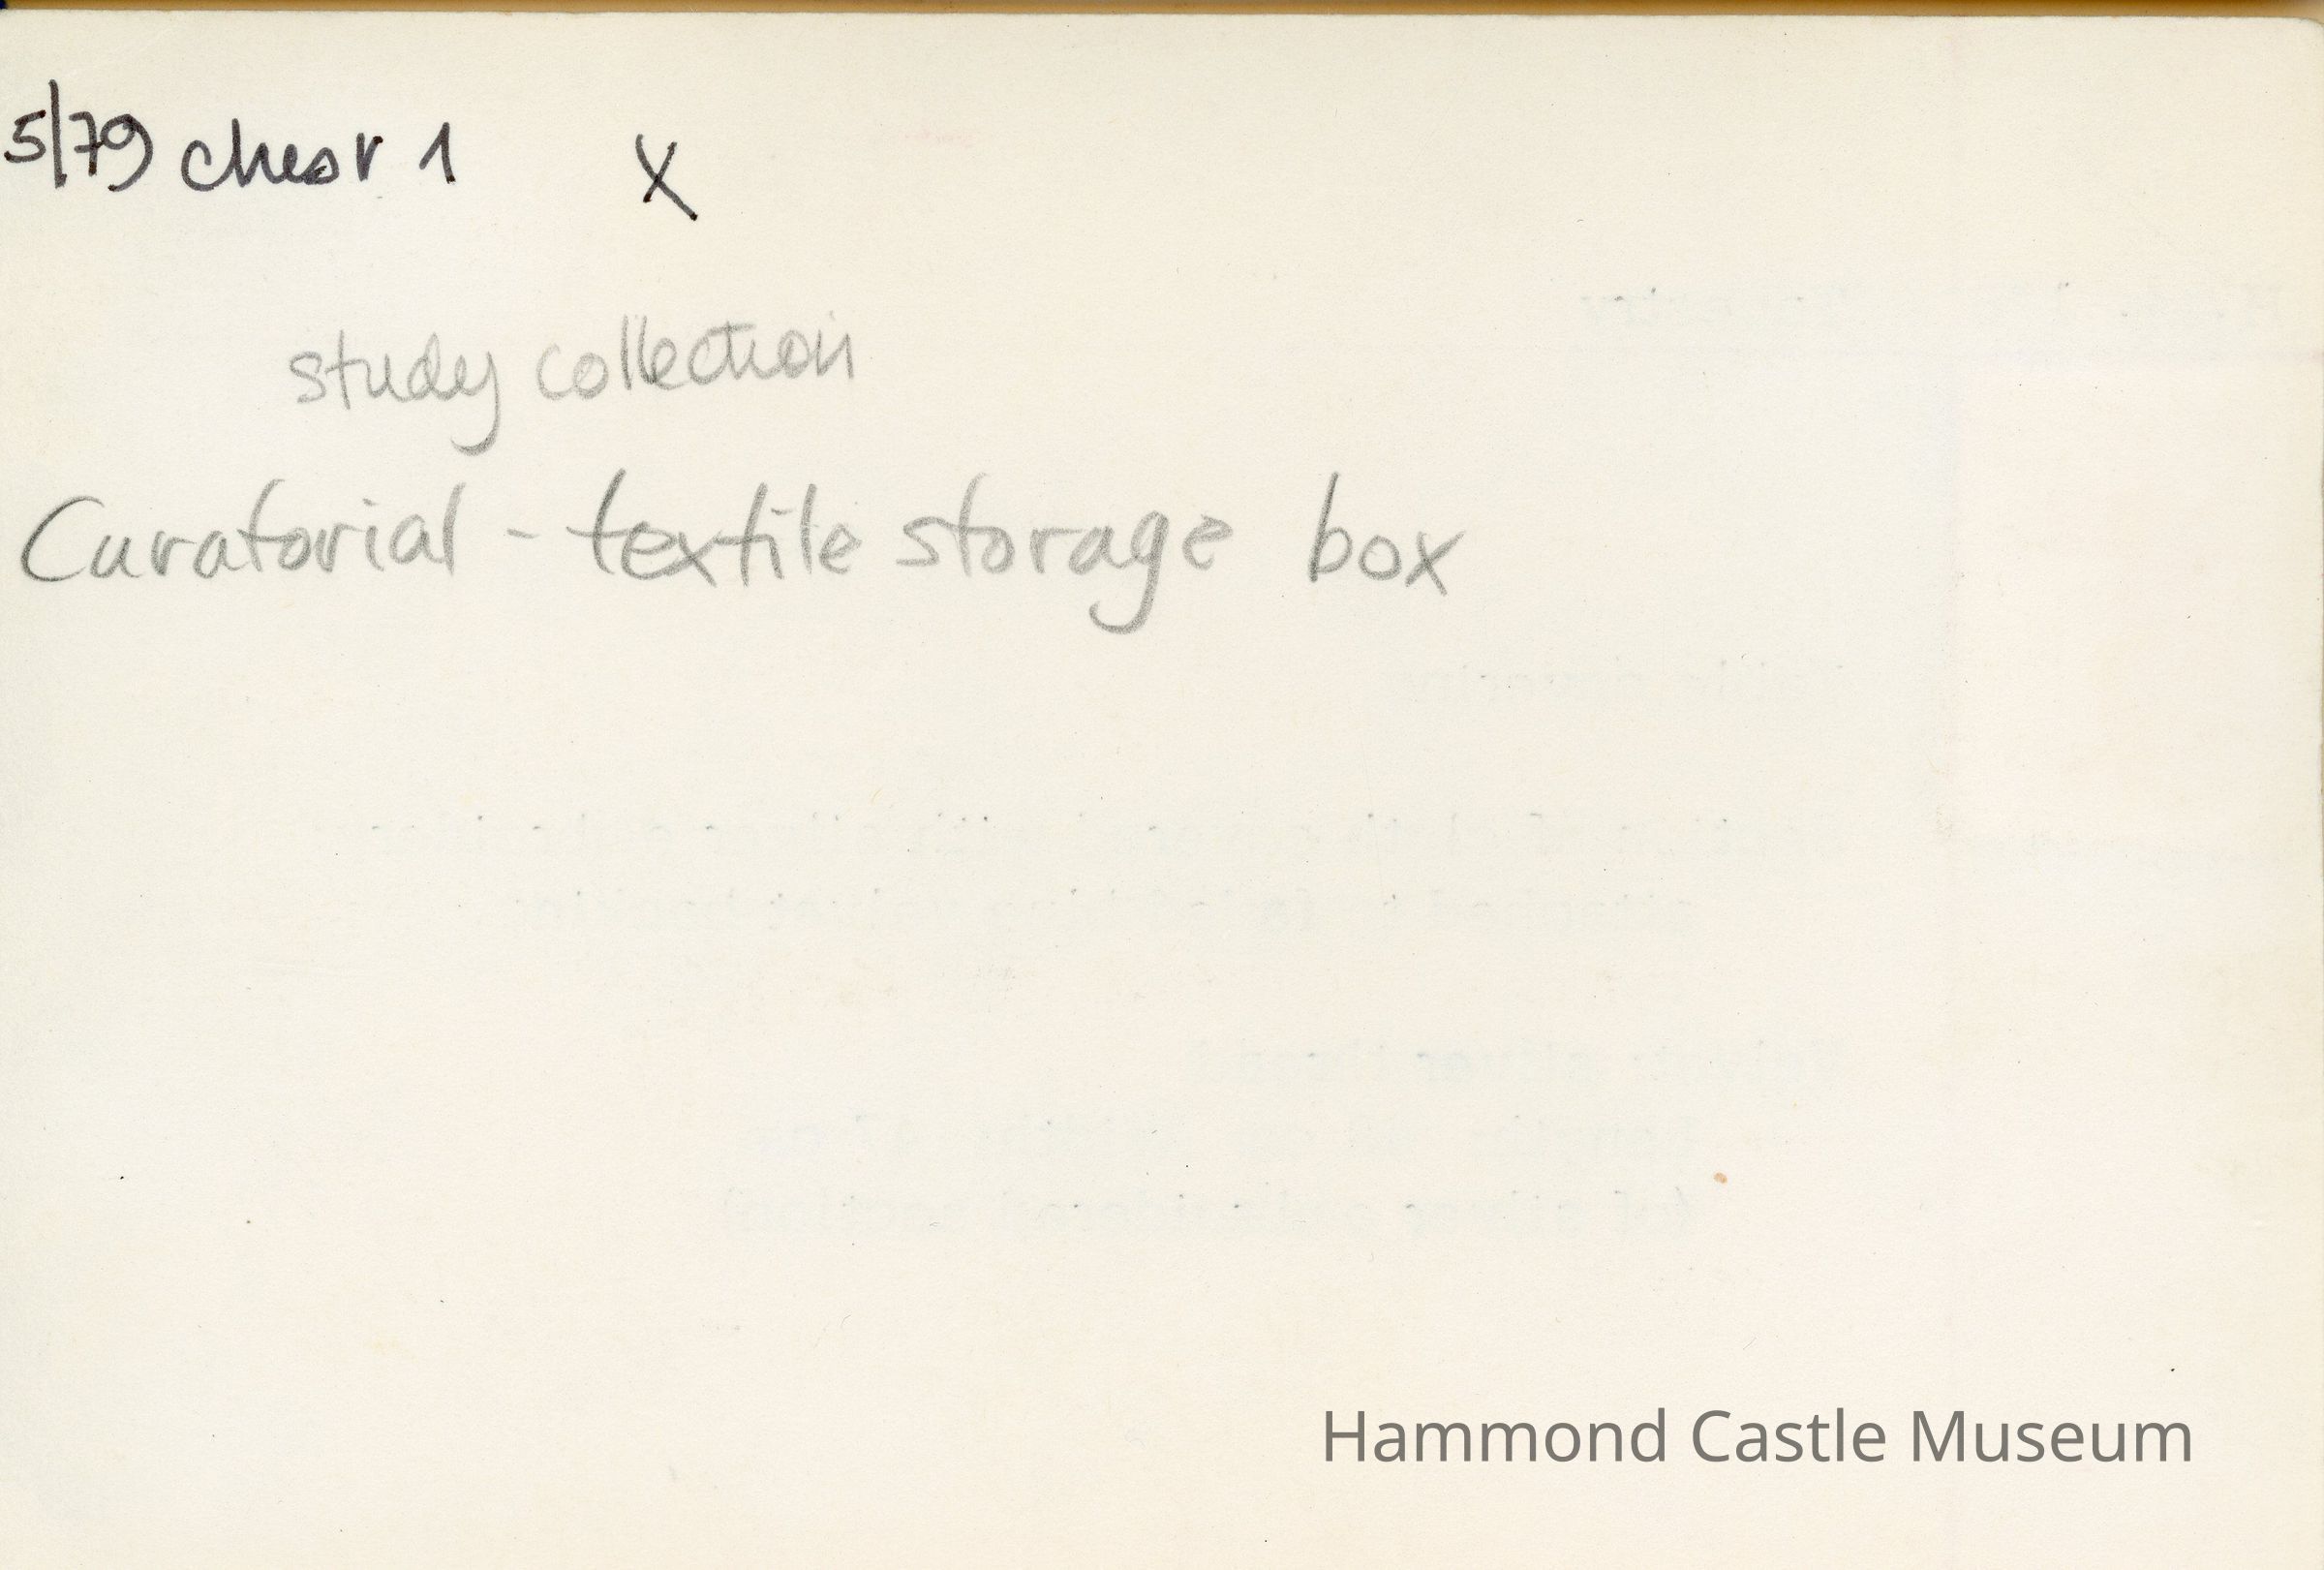 5/79 chest 1 X
study collection
Curatorial - textile storage box
Hammond Castle Museum